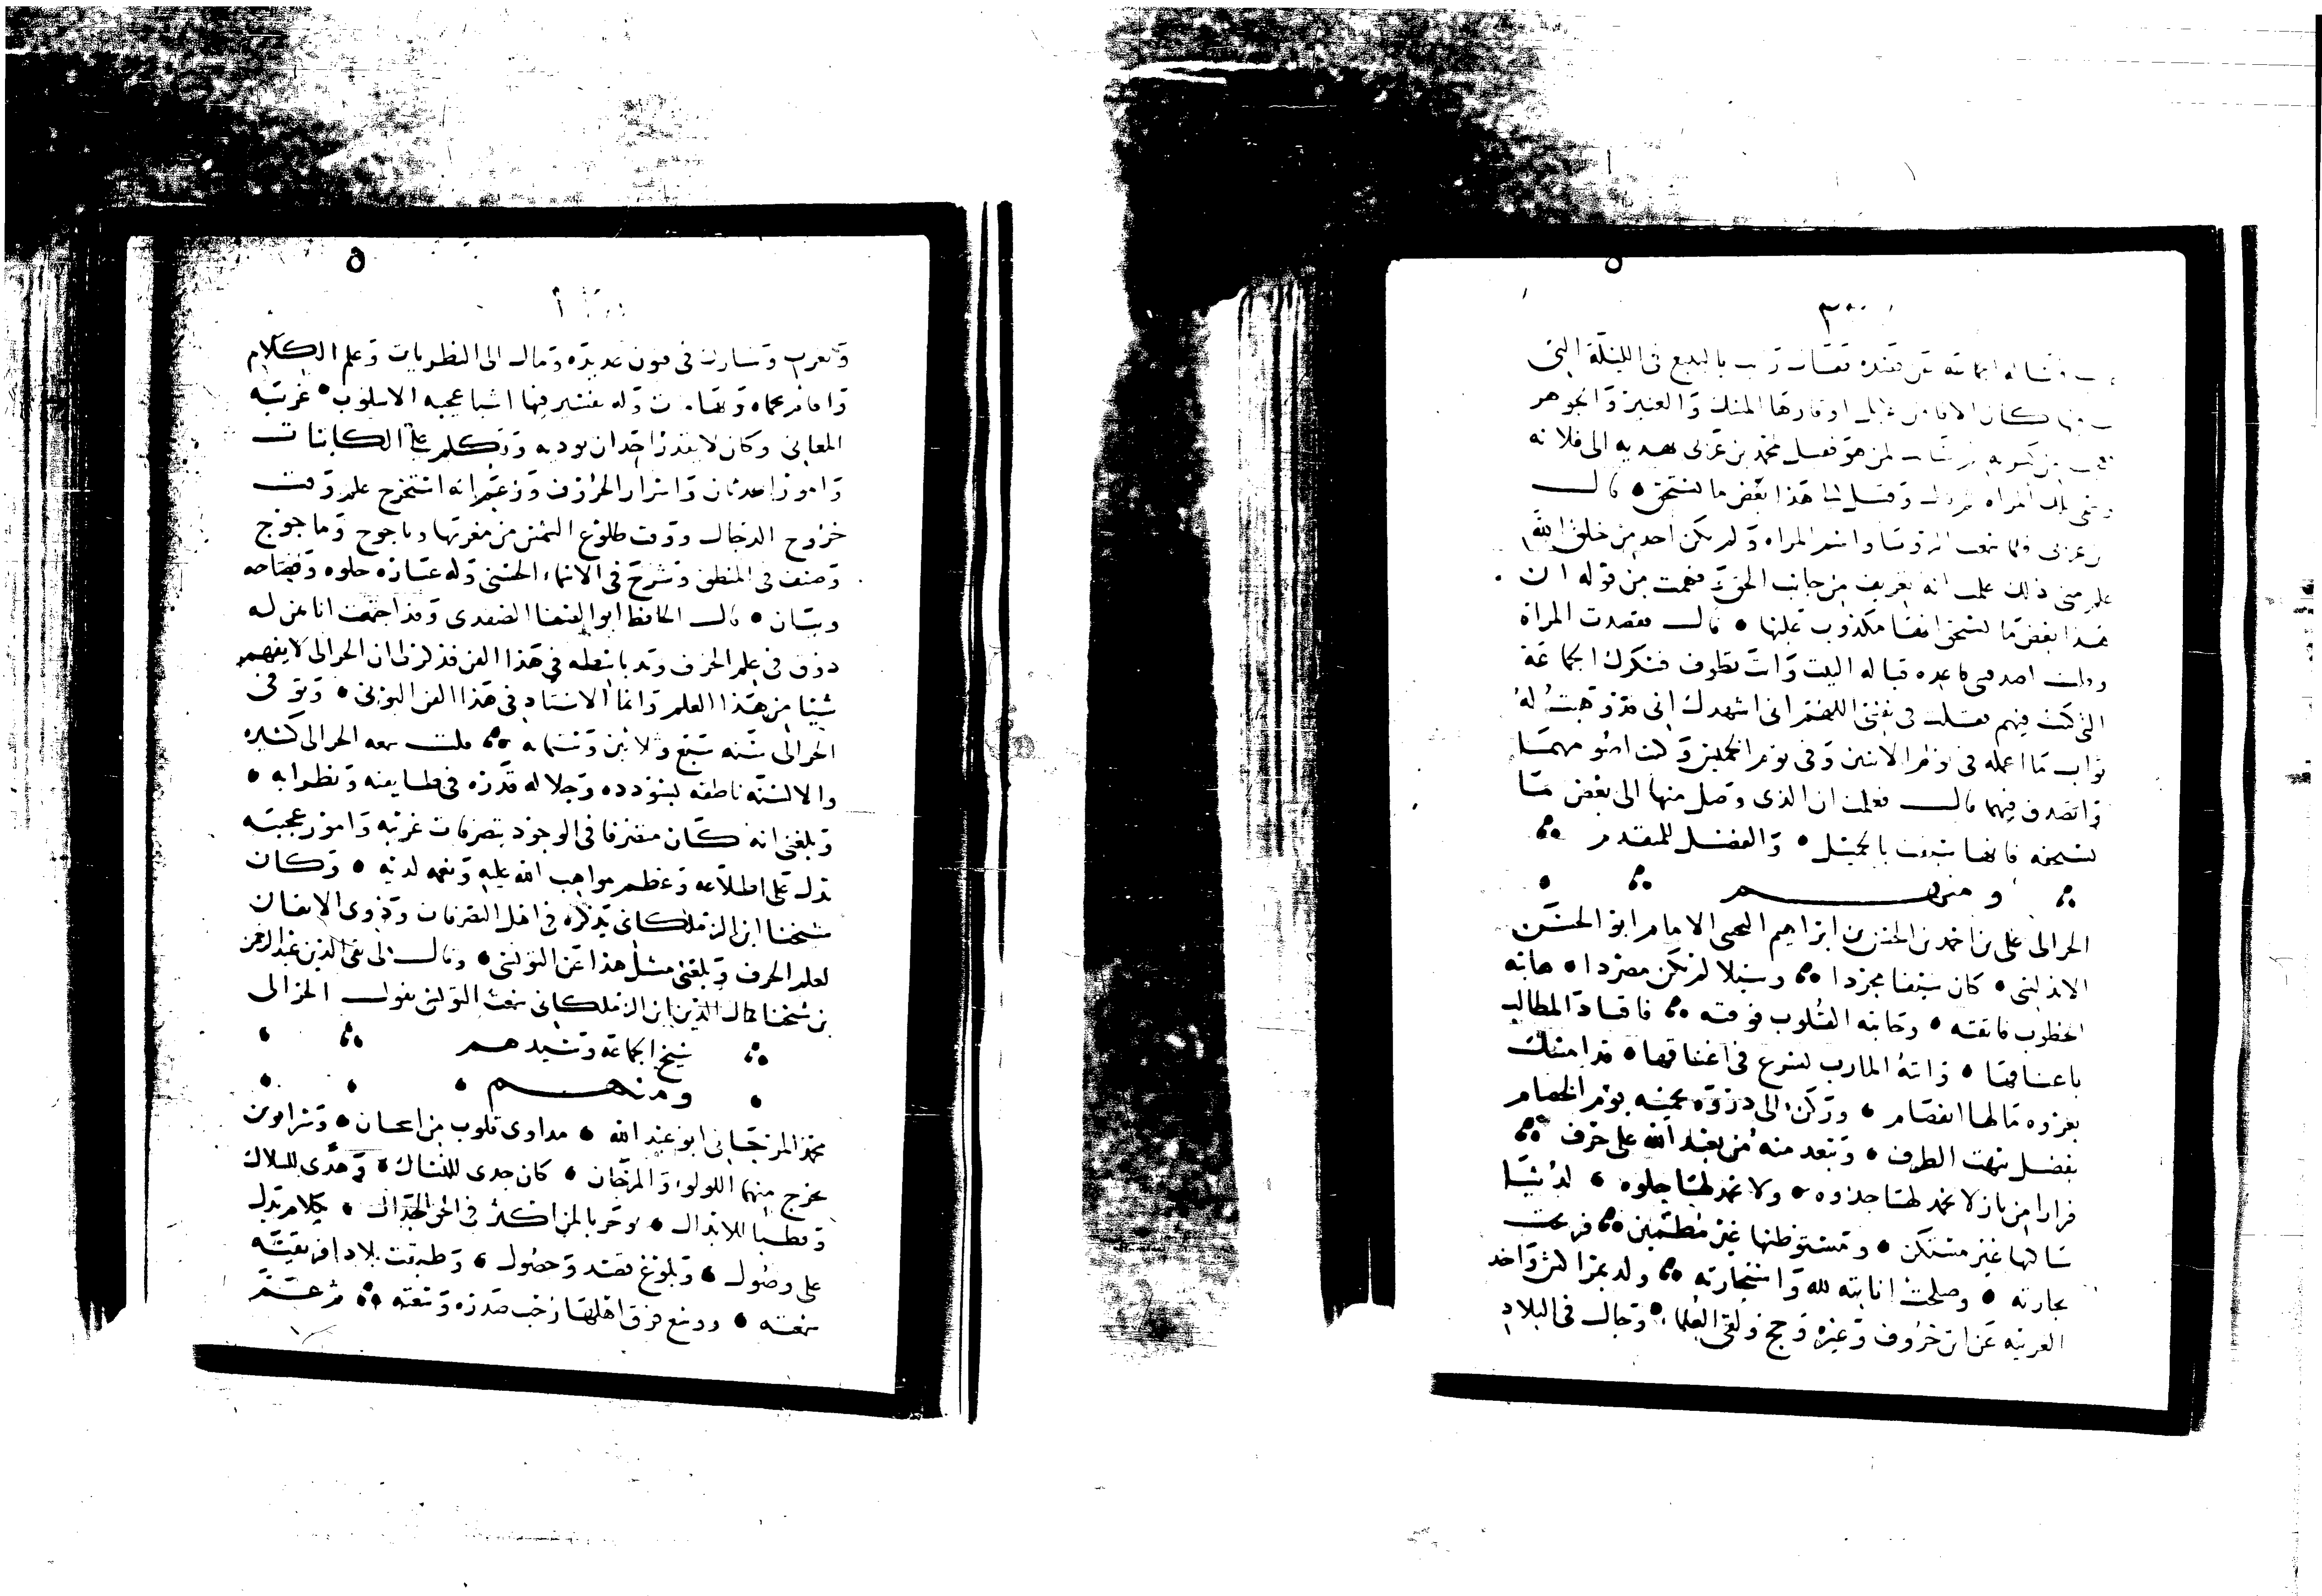 ٣٠٠
في الليلة التي
كان الاناس اوقارها المسك والعنبر والجوهر
لمن هو فقيل لمحمد بن عربي هديه الى فلانه
تلك المراه وقيل لها هذا بعض ما تستحق • قال
ابن عربي فلما سمعت الرويا واسم المراه ولم يكن احد من خلق الله
علم مني ذلك علمت انه تعريف من جانب الحق وفهمت من قوله ان
هذا بعض ما تستحق انها مكذوب عليها • قال فقصدت المراة
وقلت اصدقيني قباله البيت وانت تطوف فشكرك الجماعة
الذي كنت فيهم فقلت في نفسي اللهم اني اشهدك اني قد وهبت له
ثواب ما اعمله في يوم الاثنين وفي يوم الخميس وكنت اصومهما
واتصدق فيهما قال فعلمت ان الذي وصل منها الى بعض ما
تستحقه فانها سبقت بالجميل • والفضل للمتقدم
ومنهم
الحرالي علي بن احمد بن الحسن بن ابراهيم التجيبي الامام ابو الحسن
الاندلسي • كان سيفا مجردا وسيلا لم يكن مصردا • هابته
الخطوب فاتقته • وحابته القلوب فوقته فاقتاد المطالب
باعناقها • واتته المارب لتسرع في اعناقها • قد امسك
بعروه ما لها انفصام • وركن الى ذروه محميه يوم الخصام
بفضل مبهت الطرف • وتبعد منه من يعبد الله على حرف
فرارا من نار لا تخمد لها جذوه • ولا تحمد لها جلوه • لدنيا
ساكنها غير متمكن • ومستوطنها غير مطمئن فربحت
تجارته • وصلحت انابته لله واستجارته ولد بمراكش واخذ
العربيه عن ابن خروف وغيره وحج ولقي العلماء • وجال في البلاد
والغرب وشارك في فنون عديده ومال الى النظريات وعلم الكلام
واقام بحماه وبها مات وله تفسير فيها اشيا عجيبه الاسلوب • غريبه
المعاني وكان لا يقدر احد ان يوذيه وتكلم على الكاينات
وامور الحدثان واسرار الحروف وزعم انه استخرج علم وقت
خروج الدجال ووقت طلوع الشمس من مغربها وياجوج وماجوج
وصنف في المنطق وشرح في الاسماء الحسنى وله عباره حلوه وفصاحه
وبيان • قال الحافظ ابو الصفا الصفدي وقد اجتمعت انا بمن له
ذوق في علم الحرف ويد باسطه في هذا الفن فذكر لي ان الحرالي لا يفهم
شيئا من هذا العلم وانما الاستاد في هذا الفن البوني • وتوفي
الحرالي سنه سبع وثلاثين وستمايه قلت سمعه الحرالي كثيره
والالسنه ناطقه بسودده وجلاله قدره في طايفته ونظرايه •
وبلغني انه كان متصرفا في الوجود بتصرفات غريبه وامور عجيبه
تدل على اطلاعه وعظم مواهب الله عليه ونعمه لديه • وكان
شيخنا ابن الزملكاني يذكره في اهل التصرفات وذوي الاتقان
لعلم الحرف وبلغني مثل هذا عن التونسي • وقال لي تقي الدين عبد الرحمن
بن شيخنا كمال الدين ابن الزملكاني سمعت التونسي يقول الحرالي
شيخ الجماعه وسيدهم
ومنهم
محمد المرجاني ابو عبد الله • مداوي قلوب من اعان •
يخرج منهما اللولو والمرجان • كان جدى للنساك • وهدى للسلاك
وقطبا للابدال • بكلام يدل
على وصول • وبلوغ قصد وحصول • وطبقت بلاد افريقيه
سمعته • ووسع فرق اهلها رحب صدره وسعته ثم عم